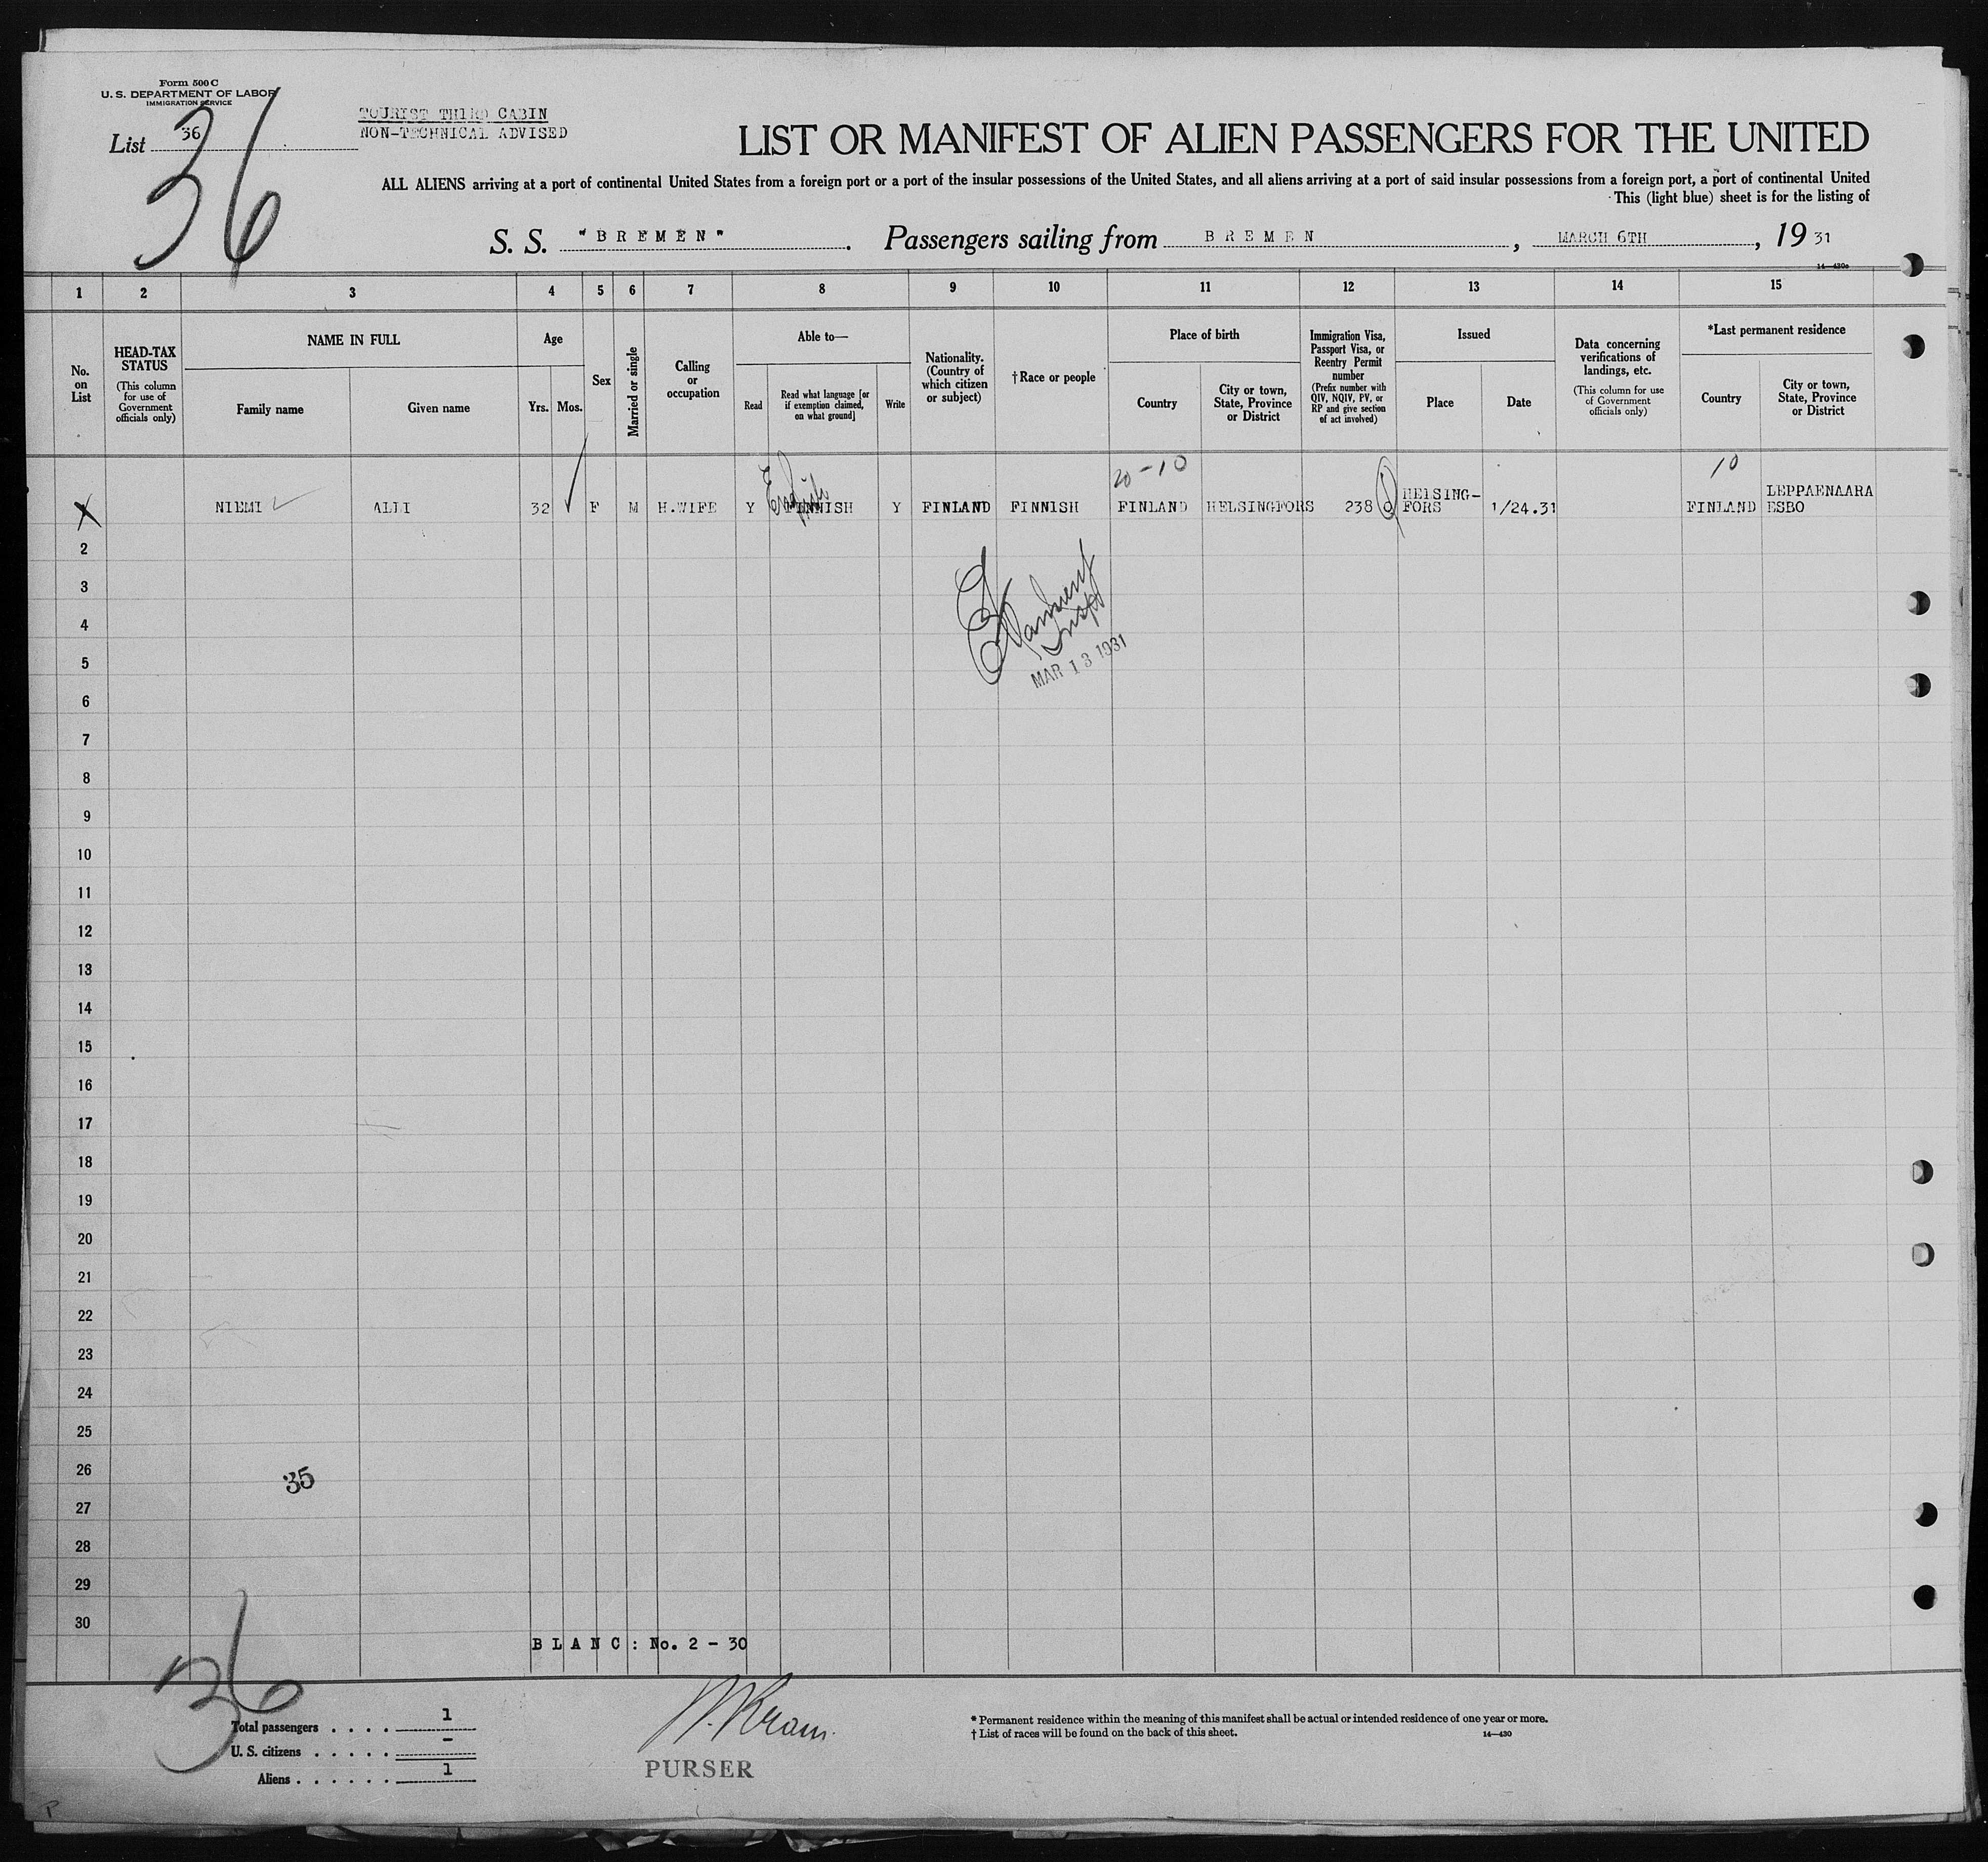 Form 500 C
U. S. DEPARTMENT OF LABOR
IMMIGRATION SERVICE
List 36
36
TOURIST THIRD CABIN
NON-TECHNICAL ADVISED
LIST OR MANIFEST OF ALIEN PASSENGERS FOR THE UNITED
ALL ALIENS arriving at a port of continental United States from a foreign port or a port of the insular possessions of the United States, and all aliens arriving at a port of said insular possessions from a foreign port, a port of continental United
This (light blue) sheet is for the listing of
S. S. "BREMEN". Passengers sailing from BREMEN, MARCH 6TH, 19 31
14—430c
1 2 3 4 5 6 7 8 9 10 11 12 13 14 15
No. on List
HEAD-TAX STATUS (This column for use of Government officials only)
NAME IN FULL
Family name
Given name
Age
Yrs. Mos.
Sex
Married or single
Calling or occupation
Able to—
Read
Read what language [or if exemption claimed, on what ground]
Write
Nationality. (Country of which citizen or subject)
†Race or people
Place of birth
Country
City or town, State, Province or District
Immigration Visa, Passport Visa, or Reentry Permit number (Prefix number with QIV, NQIV, PV, or RP and give section of act involved)
Issued
Place
Date
Data concerning verifications of landings, etc. (This column for use of Government officials only)
*Last permanent residence
Country
City or town, State, Province or District
20-10
10
X NIEMI ALLI 32 F M H.WIFE Y English FINNISH Y FINLAND FINNISH FINLAND HELSINGFORS 238 HELSING-FORS 1/24.31 FINLAND LEPPAENAARA ESBO
2
3
4
5
MAR 13 1931
6
7
8
9
10
11
12
13
14
15
16
17
18
19
20
21
22
23
24
25
26
35
27
28
29
30
BLANC: No. 2 - 30
36
Total passengers . . . . 1
U. S. citizens . . . . . -
Aliens . . . . . . 1
PURSER
* Permanent residence within the meaning of this manifest shall be actual or intended residence of one year or more.
† List of races will be found on the back of this sheet.
14—430
P